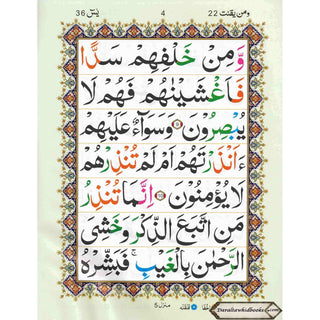 يٰسٓ 36 4 ومن يقنت 22
وَّمِنْ خَلْفِهِمْ سَدًّا
فَاَغْشَيْنٰهُمْ فَهُمْ لَا
يُبْصِرُوْنَ ۝ وَسَوَآءٌ عَلَيْهِمْ
ءَاَنْذَرْتَهُمْ اَمْ لَمْ تُنْذِرْهُمْ
لَا يُؤْمِنُوْنَ ۝ اِنَّمَا تُنْذِرُ
مَنِ اتَّبَعَ الذِّكْرَ وَخَشِيَ
الرَّحْمٰنَ بِالْغَيْبِ ۚ فَبَشِّرْهُ
منزل 5
Darultawhidbooks.com